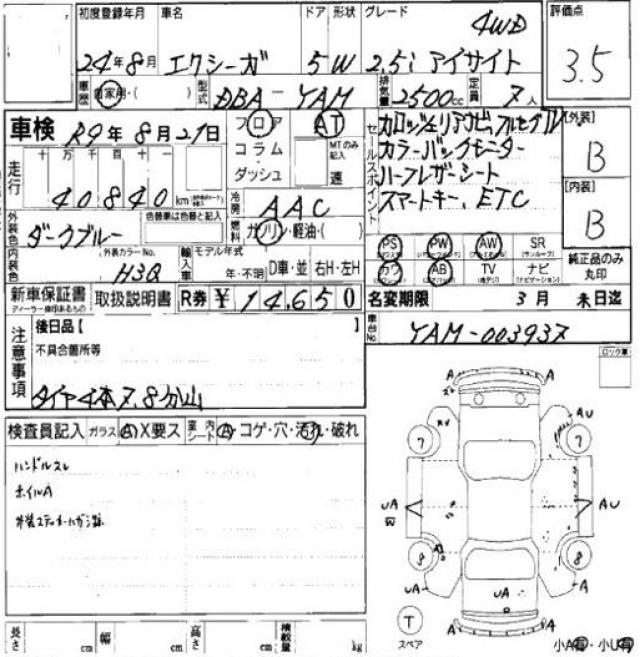 初度登録年月 車名 ドア 形状 グレード 評価点
24年8月 エクシーガ 5W 2.5i アイサイト 4WD 3.5
車歴 自家用・( ) 型式 DBA-YAM 排気量 2500cc 定員 7人
車検 R9年8月27日 フロア AT セールスポイント カロッツェリアナビ、フルセグTV [外装]
走行 十万千百十一 コラム MTのみ記入 カラーバックモニター B
ダッシュ 速 ハーフレザーシート [内装]
40840 km 冷房 AAC スマートキー、ETC B
外装色 ダークブルー 色替車は色替と記入 燃料 ガソリン・軽油・( )
PS PW AW SR (サンルーフ) 純正品のみ丸印
内装色 外装カラーNo. H3Q 輸入車 モデル年式 年・不明 D車・並 右H・左H
カワ AB TV ナビ (ナビゲーション)
新車保証書 取扱説明書 R券 ¥14,650 名変期限 3月末日迄
ディーラー捺印あるもの
注意事項 後日品【 】 車台No YAM-003937
不具合箇所等 ロック車
タイヤ4本7.8分山
検査員記入 ガラス A X要ス 室内シート A・コゲ・穴・汚れ・破れ
ハンドルスレ
ホイルA
A A
AU
7 7
UA AU
9 8
UA UA A
T
スペア A A
長さ cm 幅 cm 高さ cm 積載量 kg 小A有・小U有